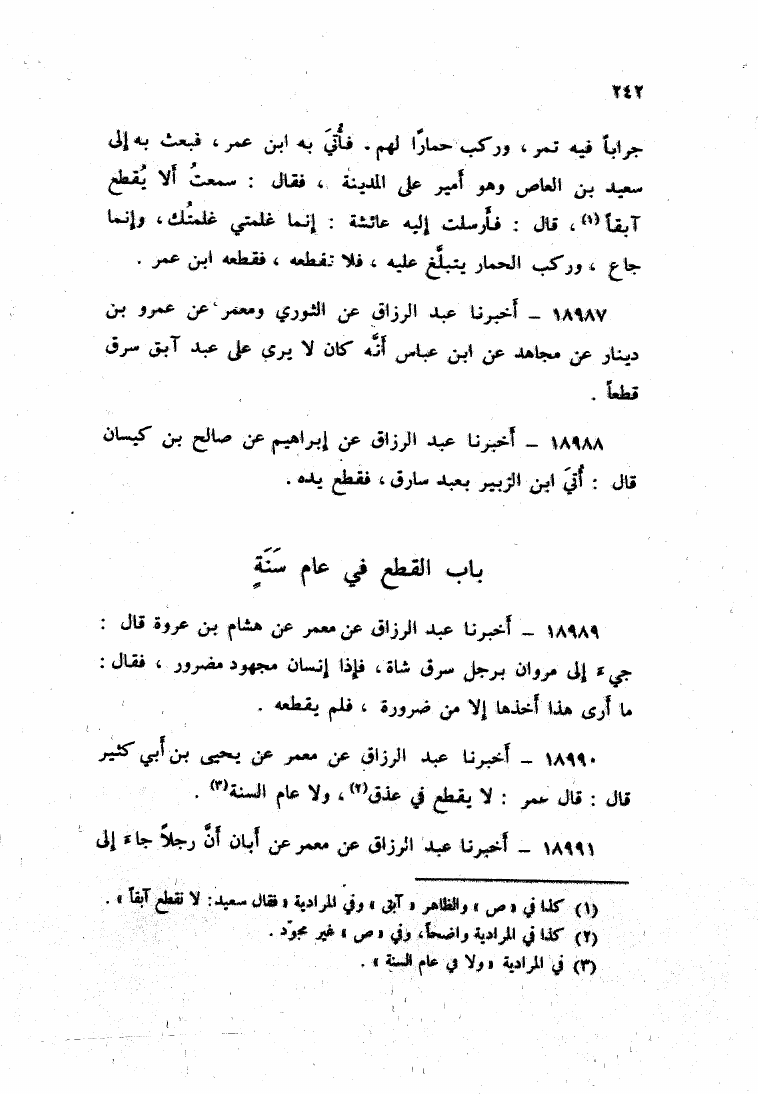 ٢٤٢
جراباً فيه تمر ، وركب حمارًا لهم . فأُتيَ به ابن عمر ، فبعث به إلى
سعيد بن العاص وهو أمير على المدينة ، فقال : سمعتُ ألا يُقطع
آبقاً (١) ، قال : فأرسلت إليه عائشة : إنما غلمتي غلمتُك ، وإنما
جاع ، وركب الحمار يتبلَّغ عليه ، فلا تقطعه ، فقطعه ابن عمر .
١٨٩٨٧ – أخبرنا عبد الرزاق عن الثوري ومعمر عن عمرو بن
دينار عن مجاهد عن ابن عباس أنَّه كان لا يرى على عبد آبق سرق
قطعاً .
١٨٩٨٨ – أخبرنا عبد الرزاق عن إبراهيم عن صالح بن كيسان
قال : أُتيَ ابن الزبير بعبد سارق ، فقطع يده .
باب القطع في عام سَنَةٍ
١٨٩٨٩ – أخبرنا عبد الرزاق عن معمر عن هشام بن عروة قال :
جيءَ إلى مروان برجل سرق شاة ، فإذا إنسان مجهود مضرور ، فقال :
ما أرى هذا أخذها إلا من ضرورة ، فلم يقطعه .
١٨٩٩٠ – أخبرنا عبد الرزاق عن معمر عن يحيى بن أبي كثير
قال : قال عمر : لا يقطع في عذق (٢) ، ولا عام السنة (٣) .
١٨٩٩١ – أخبرنا عبد الرزاق عن معمر عن أبان أنَّ رجلاً جاءَ إلى
(١) كذا في « ص » والظاهر « آبق » وفي المرادية « فقال سعيد : لا نقطع آبقاً » .
(٢) كذا في المرادية واضحاً ، وفي « ص » غير مجوّد .
(٣) في المرادية « ولا في عام السنة » .